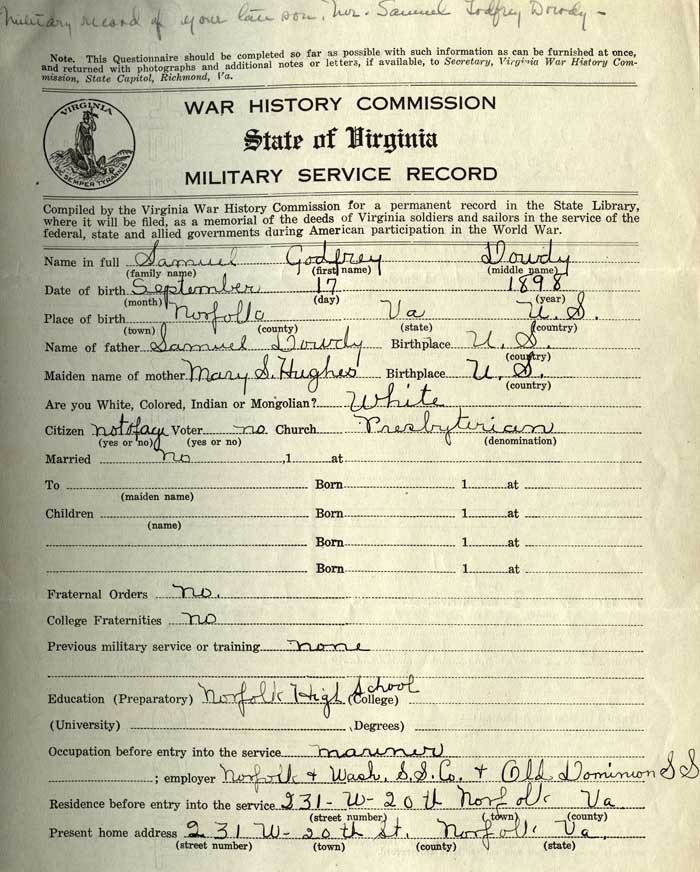 Military record of your late son, Mr. Samuel Godfrey Dowdy -
Note. This Questionnaire should be completed so far as possible with such information as can be furnished at once,
and returned with photographs and additional notes or letters, if available, to Secretary, Virginia War History Com-
mission, State Capitol, Richmond, Va.
VIRGINIA
SIC SEMPER TYRANNIS
WAR HISTORY COMMISSION
State of Virginia
MILITARY SERVICE RECORD
Compiled by the Virginia War History Commission for a permanent record in the State Library,
where it will be filed, as a memorial of the deeds of Virginia soldiers and sailors in the service of the
federal, state and allied governments during American participation in the World War.
Name in full Samuel Godfrey Dowdy
(family name) (first name) (middle name)
Date of birth September 17 1898
(month) (day) (year)
Place of birth Norfolk Va U. S.
(town) (county) (state) (country)
Name of father Samuel Dowdy Birthplace U. S.
(country)
Maiden name of mother Mary S. Hughes Birthplace U. S.
(country)
Are you White, Colored, Indian or Mongolian? White
Citizen not of age Voter no Church Presbyterian
(yes or no) (yes or no) (denomination)
Married no ,1 at
To Born 1 at
(maiden name)
Children Born 1 at
(name)
Born 1 at
Born 1 at
Fraternal Orders no.
College Fraternities no
Previous military service or training none
Education (Preparatory) Norfolk High School (College)
(University) (Degrees)
Occupation before entry into the service mariner
; employer Norfolk & Wash. S.S. Co. & Old Dominion S S
Residence before entry into the service 231-W-20th Norfolk Va
(street number) (town) (county)
Present home address 231 W-20th St. Norfolk Va.
(street number) (town) (county) (state)